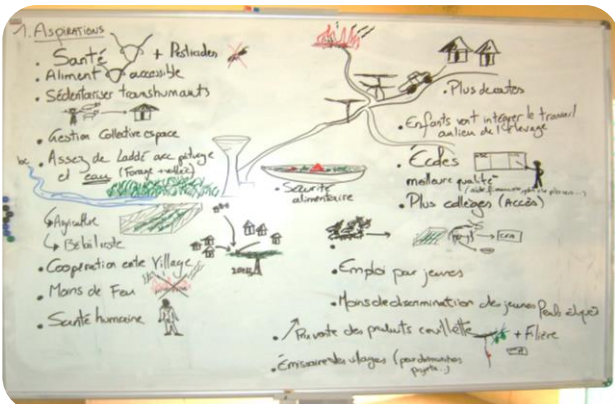 1. ASPIRATIONS
• Santé + Pesticides
• Aliment accessible
• Sédentariser transhumants
• Gestion Collective espace
• Assez de Laddé avec pâturage
et eau (Forage
↳ Agriculture
↳
• Coopération entre Village
• Moins de Feu
• Santé humaine
• Sécurité
alimentaire
• Plus de routes
• Enfants vont intégrer le travail
au lieu de l'élevage
• Écoles
meilleure qualité
• Plus collèges (Accès)
CFA
• Emploi pour jeunes
• Moins de discrimination des jeunes Peuls
• ↗ Prix vente des produits cueillette + Filière
• Émissaire des villages (pour
projets...)